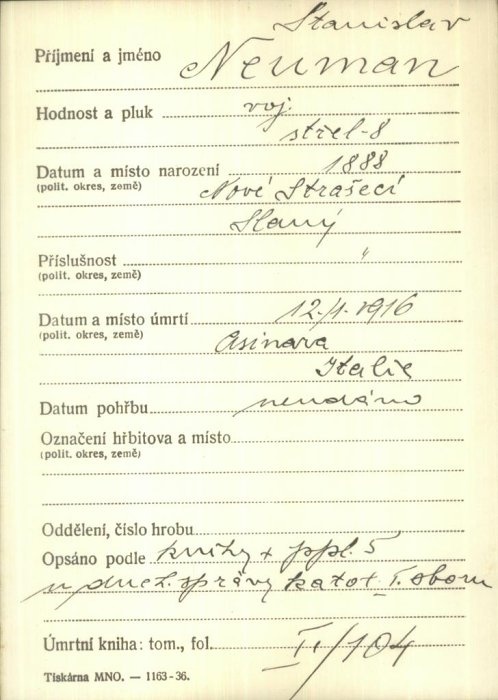 Stanislav
Příjmení a jméno Neuman
Hodnost a pluk voj.
střel-8
Datum a místo narození 1888
(polit. okres, země) Nové Strašecí
Slaný
Příslušnost "
(polit. okres, země)
Datum a místo úmrtí 12./1. 1916
(polit. okres, země) Asinara
Italie
Datum pohřbu neudáno
Označení hřbitova a místo
(polit. okres, země)
Oddělení, číslo hrobu
Opsáno podle knihy + ppl. 5
u duch. správy katol. I. oboru
Úmrtní kniha: tom., fol. II/104
Tiskárna MNO. — 1163-36.